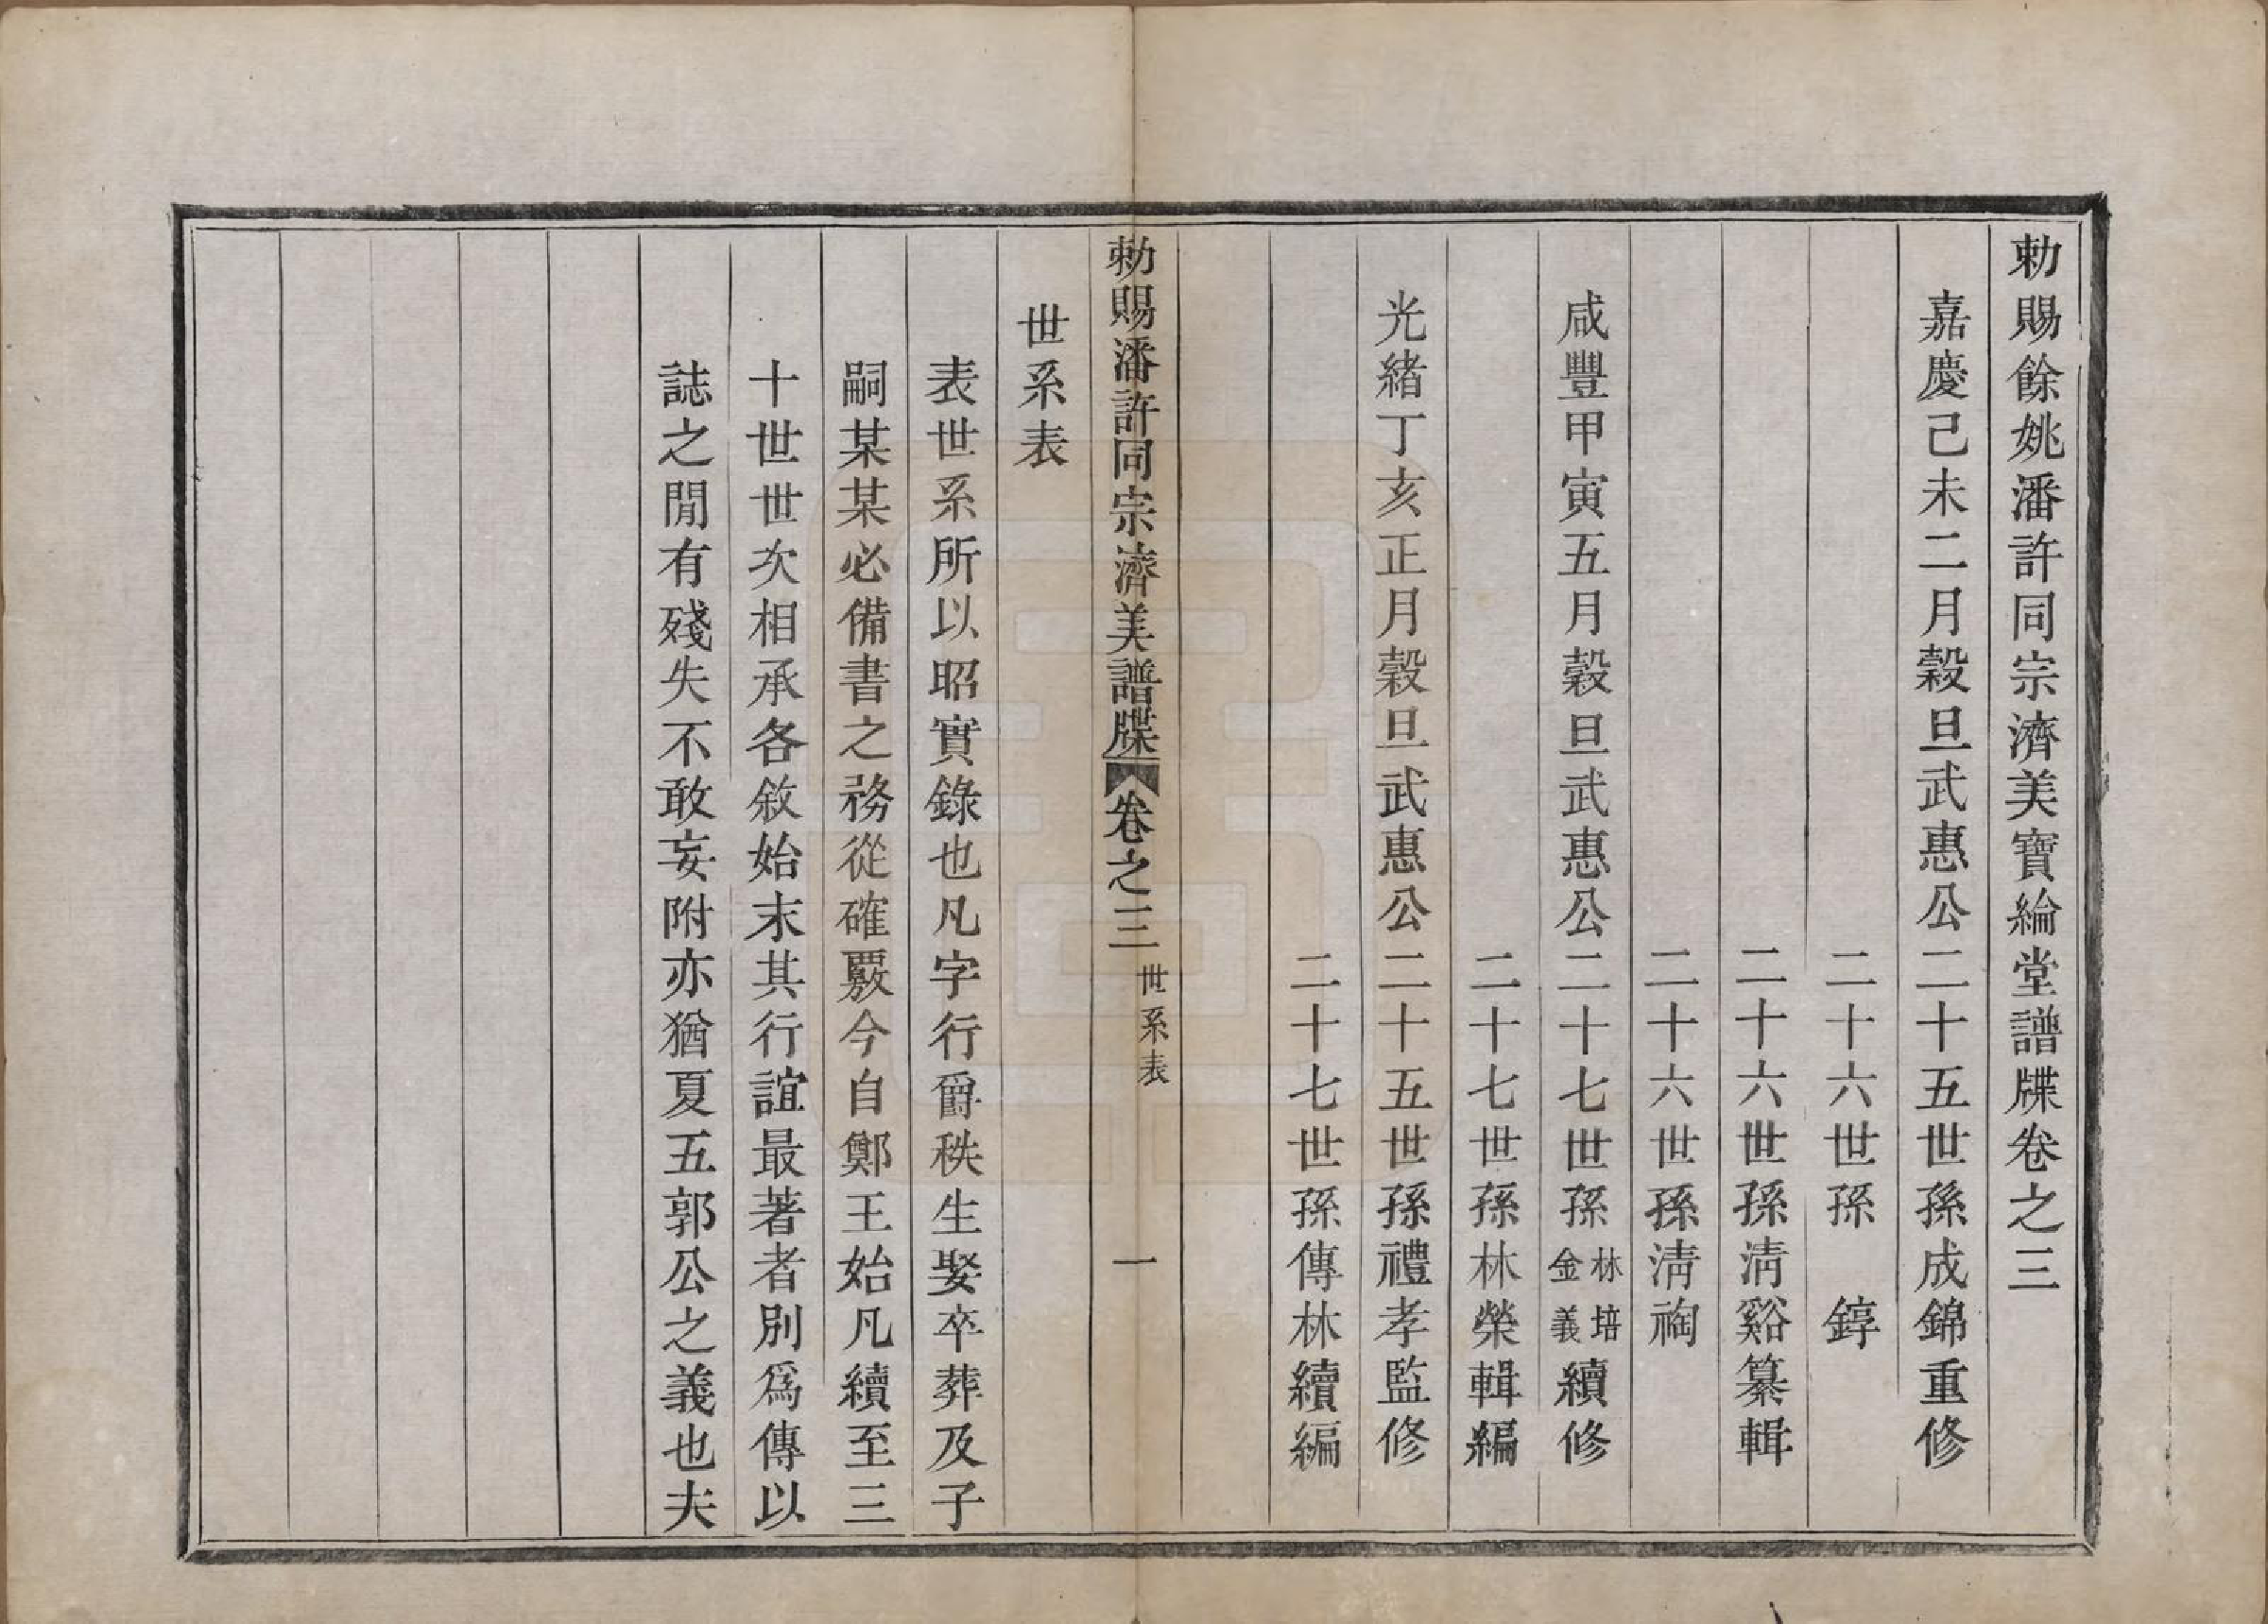 勅賜餘姚潘許同宗濟美寶綸堂譜牒卷之三
嘉慶己未二月穀旦武惠公二十五世孫成錦重修
二十六世孫　錞
二十六世孫淸谿纂輯
二十六世孫淸裪
咸豐甲寅五月穀旦武惠公二十七世孫林培金義續修
二十七世孫林榮輯編
光緖丁亥正月穀旦武惠公二十五世孫禮孝監修
二十七世孫傳林續編
勅賜潘許同宗濟美譜牒　卷之三　世系表　一
世系表
表世系所以昭實錄也凡字行爵秩生娶卒葬及子
嗣某某必備書之務從確覈今自鄭王始凡續至三
十世世次相承各敘始末其行誼最著者別爲傳以
誌之閒有殘失不敢妄附亦猶夏五郭公之義也夫